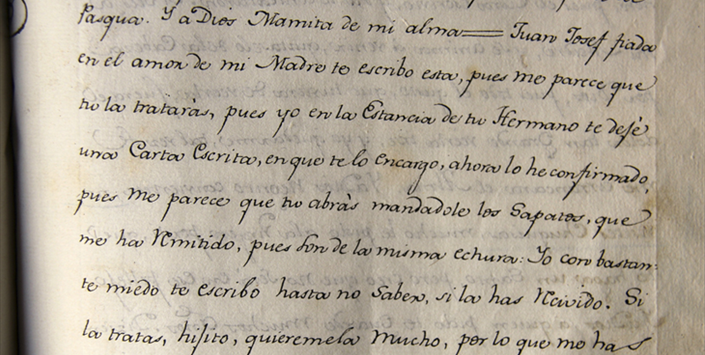 Pasqua. Y a Dios Mamita de mi alma== Juan Josef fiada
en el amor de mi Madre te escribo esta, pues me parece que
tu la trataràs, pues yo en la Estancia de tu Hermano te dejè
una Carta Escrita, en que te lo encargo, ahora lo he confirmado,
pues me parece que tu abràs mandadole los Sapatos, que
me ha Remitido, pues son de la misma echura: Yo con bastan-
te miedo te escribo hasta no Saber, si la has Recivido. Si
la tratas, hijito, quieremela mucho, por lo que me has